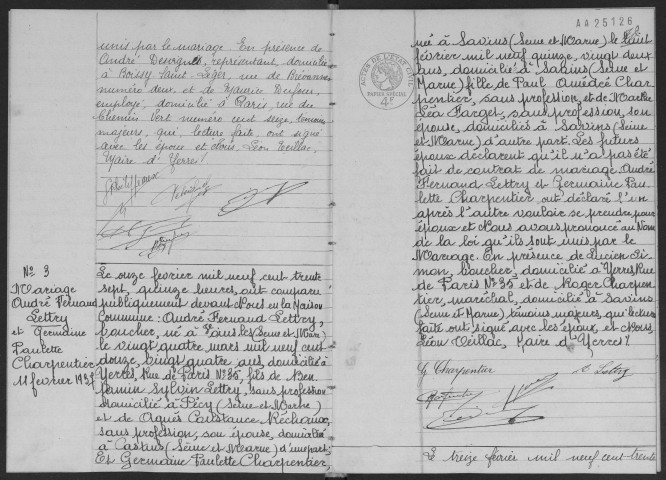 unis par le mariage En présence de
André Desvignes, représentant, domicilié
à Boissy Saint Léger, rue de Brévannes
numéro deux et de Maurice Dufour,
employé, domicilié à Paris, rue du
Chemin Vert numéro cent seize, témoins
majeurs, qui, lecture faite ont signé
avec les époux et Nous, Léon Veillac,
Maire d'Yerres!
No 3
Mariage
André Fernand
Lettry
et Germaine
Paulette
Charpentier
11 février 1937
Le onze février mil neuf cent trente
sept, quinze heures, ont comparu
publiquement devant Nous en la Maison
Commune: André Fernand Lettry,
boucher, né à (Seine et Marne)
le vingt quatre mars mil neuf cent
douze, vingt quatre ans, domicilié à
Yerres, Rue de Paris No 35, fils de Ben
jamin Sylvin Lettry, sans profession
domicilié à Pécy (Seine et Marne)
et de Agnès Constance Réchaux,
sans profession, son épouse, domiciliée
à (Seine et Marne) d'une part.
Et Germaine Paulette Charpentier,
AA25126
ACTES DE L'ÉTAT CIVIL
PAPIER SPÉCIAL
4F
née à Savins (Seine et Marne) le huit
février mil neuf quinze, vingt deux
ans, domiciliée à Savins (Seine et
Marne) fille de Paul Amédée Char
pentier, sans profession, et de Marthe
Léa Farget, sans profession, son
épouse, domiciliés à Savins (Seine
et Marne) d'autre part. Les futurs
époux déclarent qu'il n'a pas été
fait de contrat de mariage. André
Fernand Lettry et Germaine Pau
lette Charpentier ont déclaré l'un
après l'autre vouloir se prendre pour
époux et Nous avons prononcé au Nom
de la loi qu'ils sont unis par le
Mariage. En présence de Lucien Si
mon, boucher, domicilié à Yerres Rue
de Paris No 35 et de Roger Charpen
tier, maréchal, domicilié à Savins
(Seine et Marne) témoins majeurs, qui lecture
faite ont signé avec les époux, et Nous,
Léon Veillac, Maire d'Yerres!
G Charpentier
A Lettry
Charpentier
Le treize février mil neuf cent trente